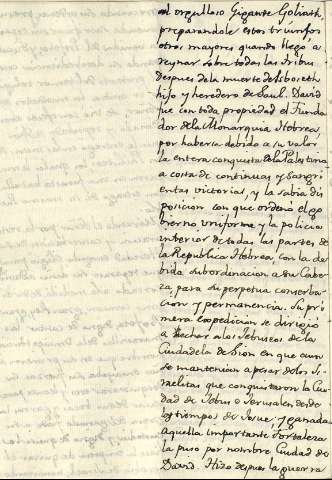 al orgulloso Gigante Goliath,
preparandole estos triunfos
otros mayores quando llegó á
reynar sobre todas las Tribus
despues de la muerte de Isboseth
hijo y heredero de Saul. David
fue con toda propiedad el Funda
dor de la Monarquia Hebrea,
por haberse debido a su valor
la entera conquista de la Palestina
a costa de continuas y sangri
entas victorias, y la sabia dis
posicion con que ordenó el go
bierno uniforme y la policia
interior de todas las partes de
la Republica Hebrea, con la de
bida subordinacion a su Cabe
za, para su perpetua conserba
cion y permanencia. Su pri
mera expedicion se dirigio
a hechar a los Jebuseos de la
Ciudadela de Sion en que aun
se mantenian a pesar de los Is
raelitas que conquistaron la Ciu
dad de Jebus o Jerusalen desde
los tiempos de Josue; y ganada
aquella importante Fortaleza
la puso por nombre Ciudad de
David. Hizo despues la guerra